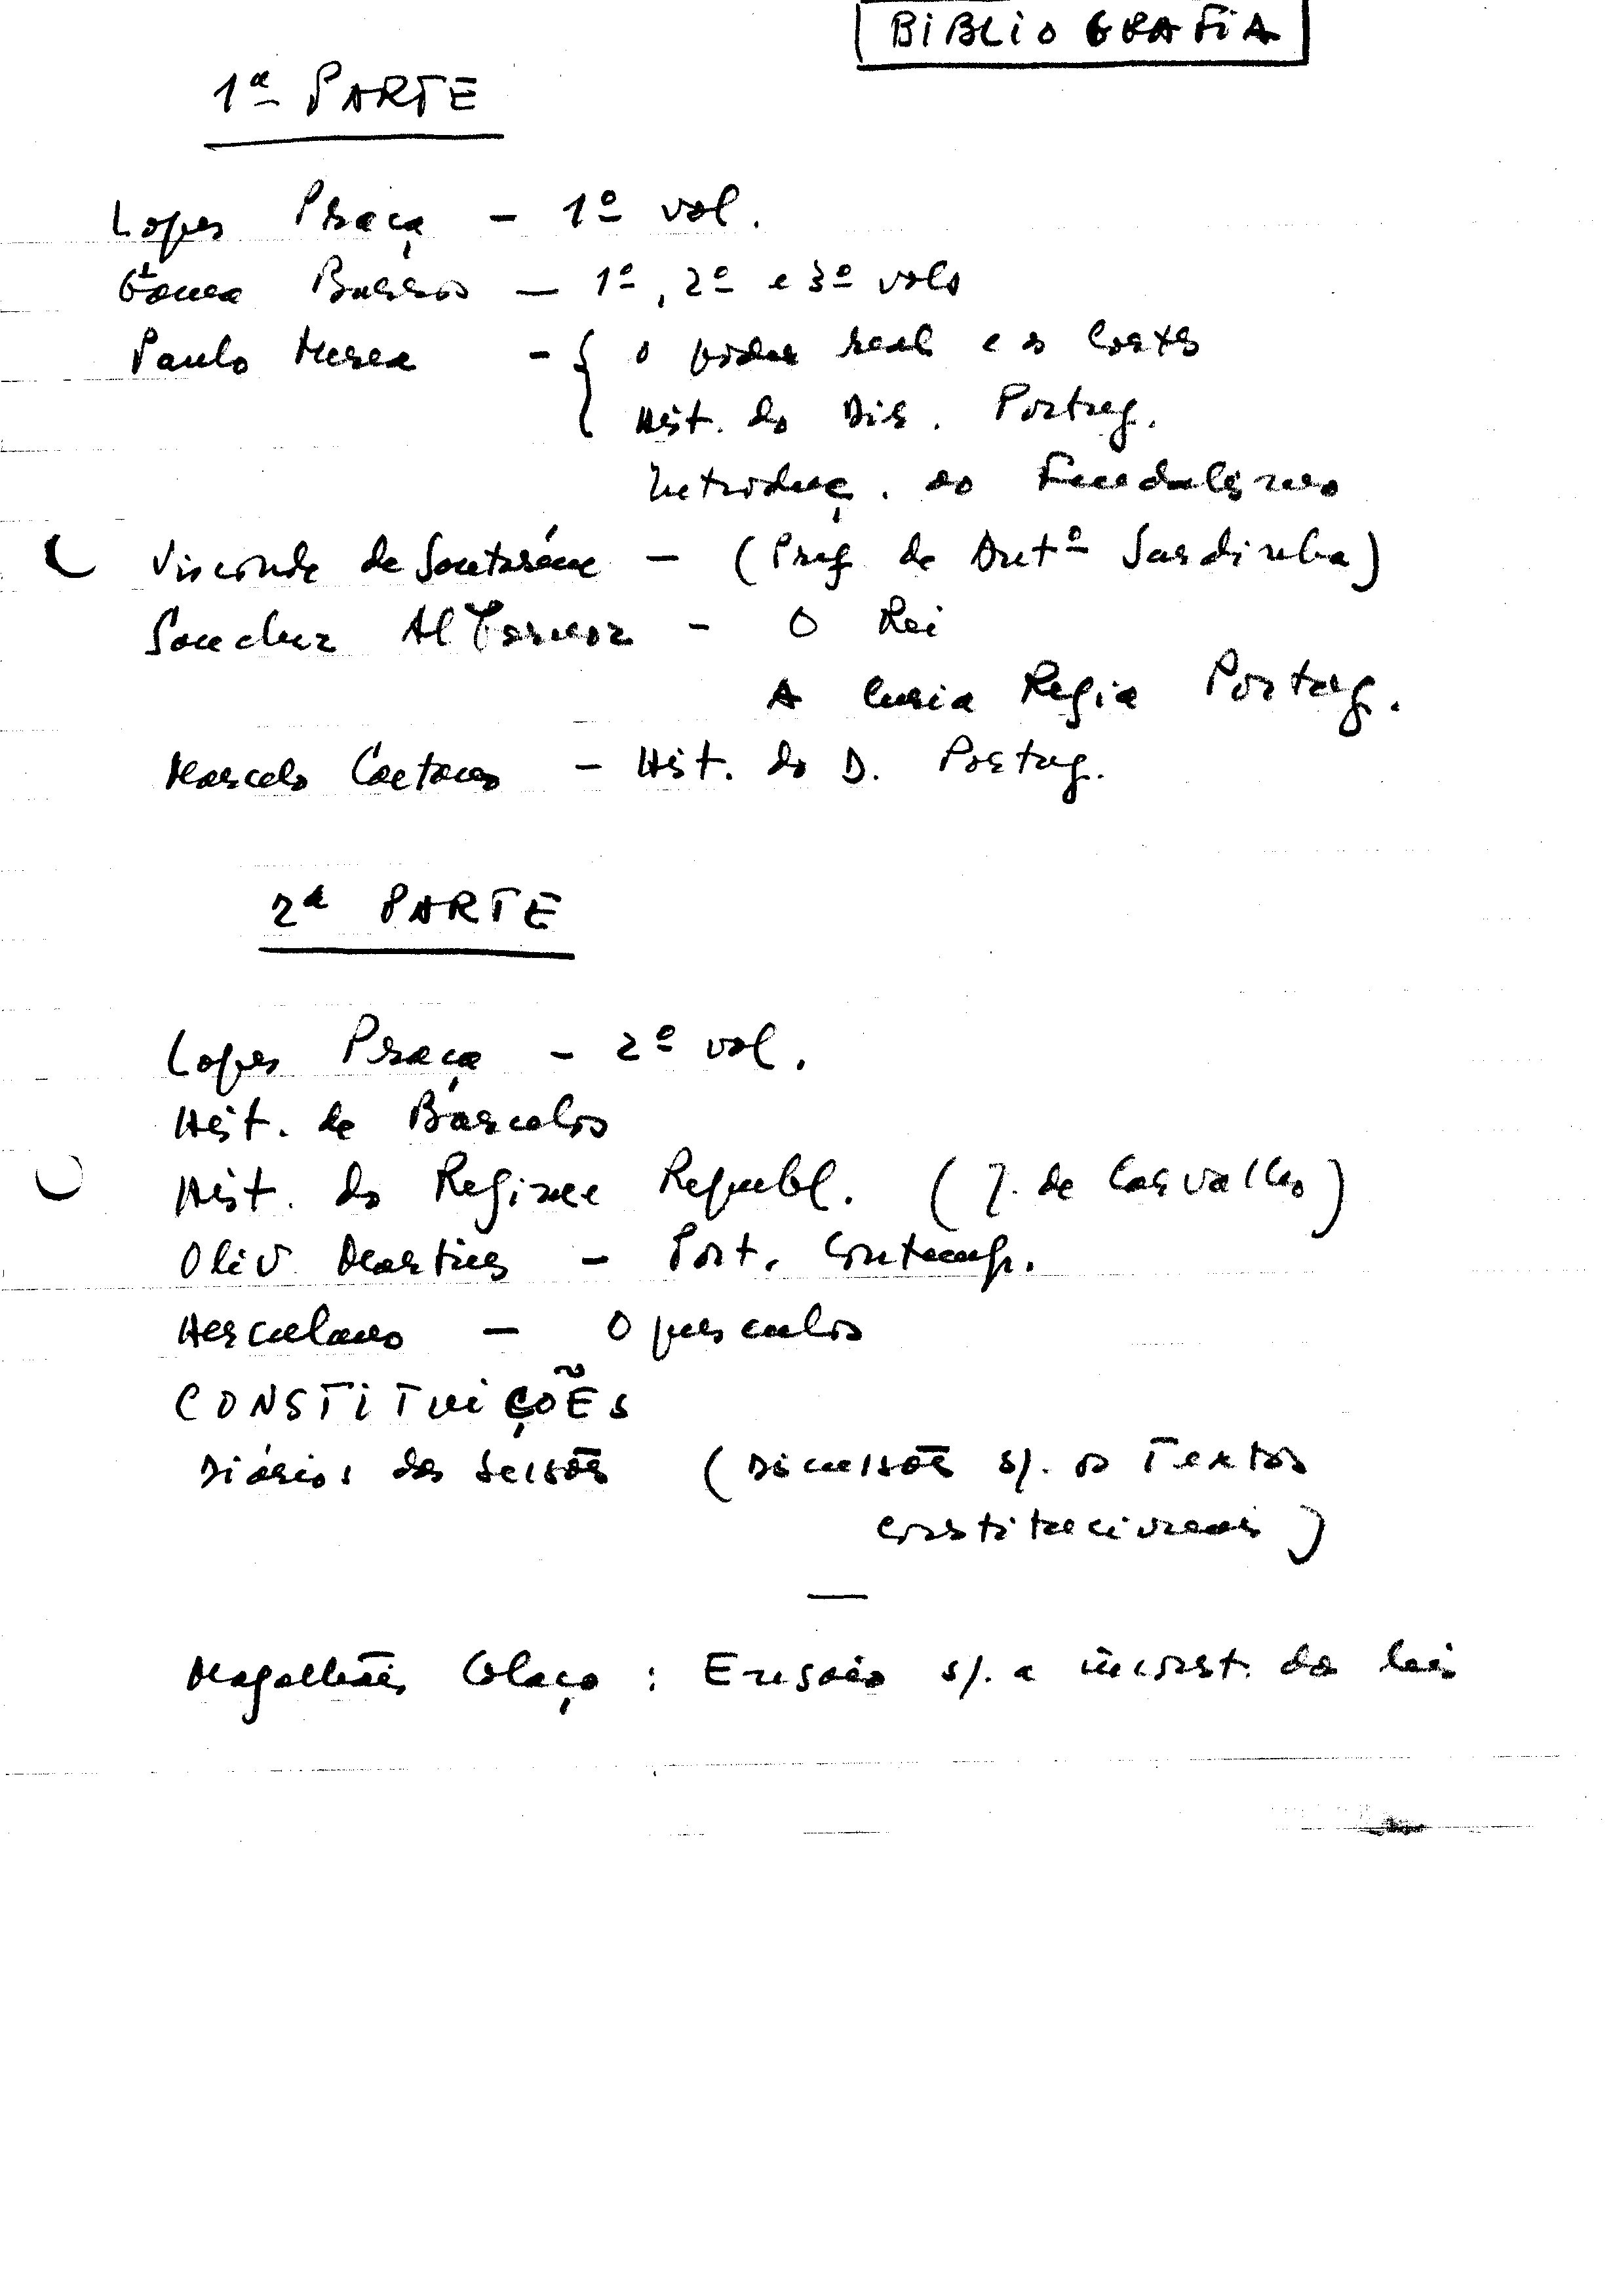 BIBLIOGRAFIA
1ª PARTE
Lopes Praça - 1º vol.
Gama Barros - 1º, 2º e 3º vols
Paulo Merea - { O poder real e as Cortes
Hist. do Dir. Portug.
Introduç. ao Feudalismo
Visconde de Santarém - (Pref. de Antº Sardinha)
Sanchez Albornoz - O Rei
A Curia Regia Portug.
Marcelo Caetano - Hist. do D. Portug.
2ª PARTE
Lopes Praça - 2º vol.
Hist. de Barcelos
Hist. do Regime Republ. (J. de Carvalho)
Oliv. Martins - Port. Contemp.
Herculano - Opusculos
CONSTITUIÇÕES
Diários das Sessões (Discussões s/. os Textos
constitucionais)
Magalhães Colaço : Ensaio s/. a inconst. das leis